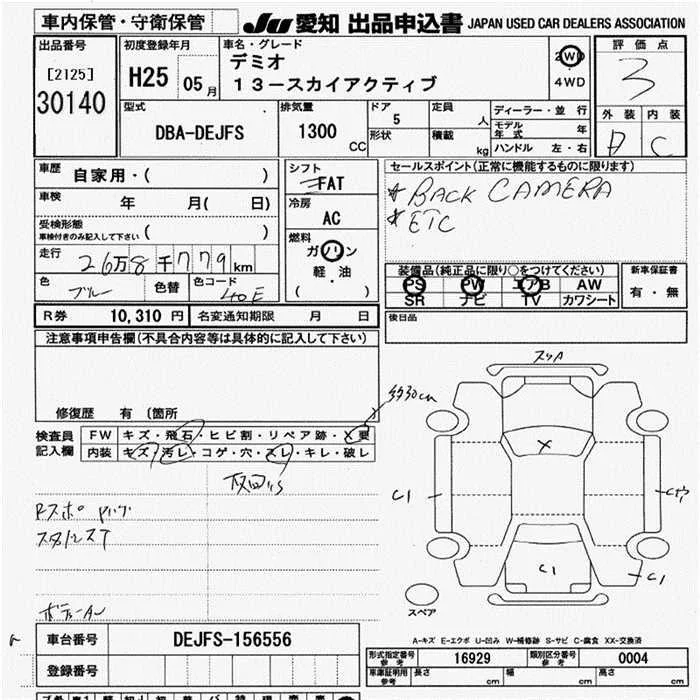 車内保管・守衛保管
JU 愛知 出品申込書 JAPAN USED CAR DEALERS ASSOCIATION
出品番号
[2125]
30140
初度登録年月
H25 05月
車名・グレード
デミオ
13-スカイアクティブ
2WD
4WD
評価点
3
外装 内装
B C
型式
DBA-DEJFS
排気量
1300
CC
ドア
5
形状
定員
人
積載
kg
ディーラー・並行
モデル年式 年
ハンドル 左・右
車歴
自家用・( )
車検
年 月( 日)
受検形態
車検付きのみ記入して下さい ( )
走行
26万8千779km
色
ブルー
色替
色コード
40E
シフト
FAT
冷房
AC
燃料
ガソリン
軽・油
( )
セールスポイント(正常に機能するものに限ります)
* BACK CAMERA
* ETC
装備品(純正品に限り○をつけてください)
PS PW エアB AW
SR ナビ TV カワシート
新車保証書
有・無
R券 10,310円 名変通知期限 月 日
後日品
注意事項申告欄(不具合内容等は具体的に記入して下さい)
修復歴 有 〔箇所
検査員記入欄
FW キズ・飛石・ヒビ割・リペア跡・X要
内装 キズ・汚レ・コゲ・穴・スレ・キレ・破レ
約30cm
スリA
X
C1
C1
C1
スペア
車台番号 DEJFS-156556
登録番号
A-キズ E-エクボ U-凹み W-補修跡 S-サビ C-腐食 XX-交換済
形式指定番号 参考 16929 類別区分番号 参考 0004
車庫証明用 参考 長さ cm 幅 cm 高さ cm